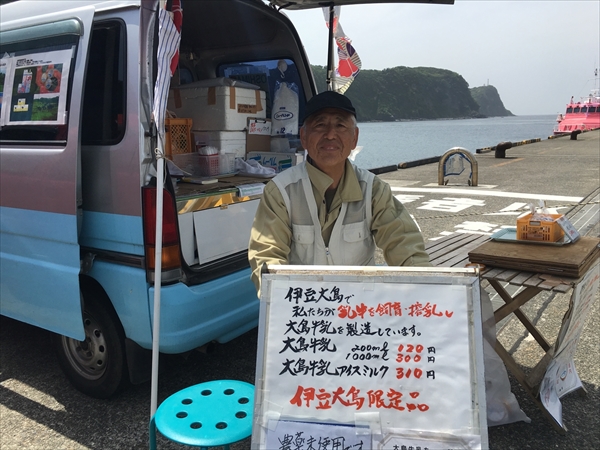 伊豆大島で
私たちが乳牛を飼育・搾乳し
大島牛乳を製造しています。
大島牛乳 200mℓ 120円
1000mℓ 300円
大島牛乳アイスミルク 310円
伊豆大島限定品
農薬未使用です
大島牛乳